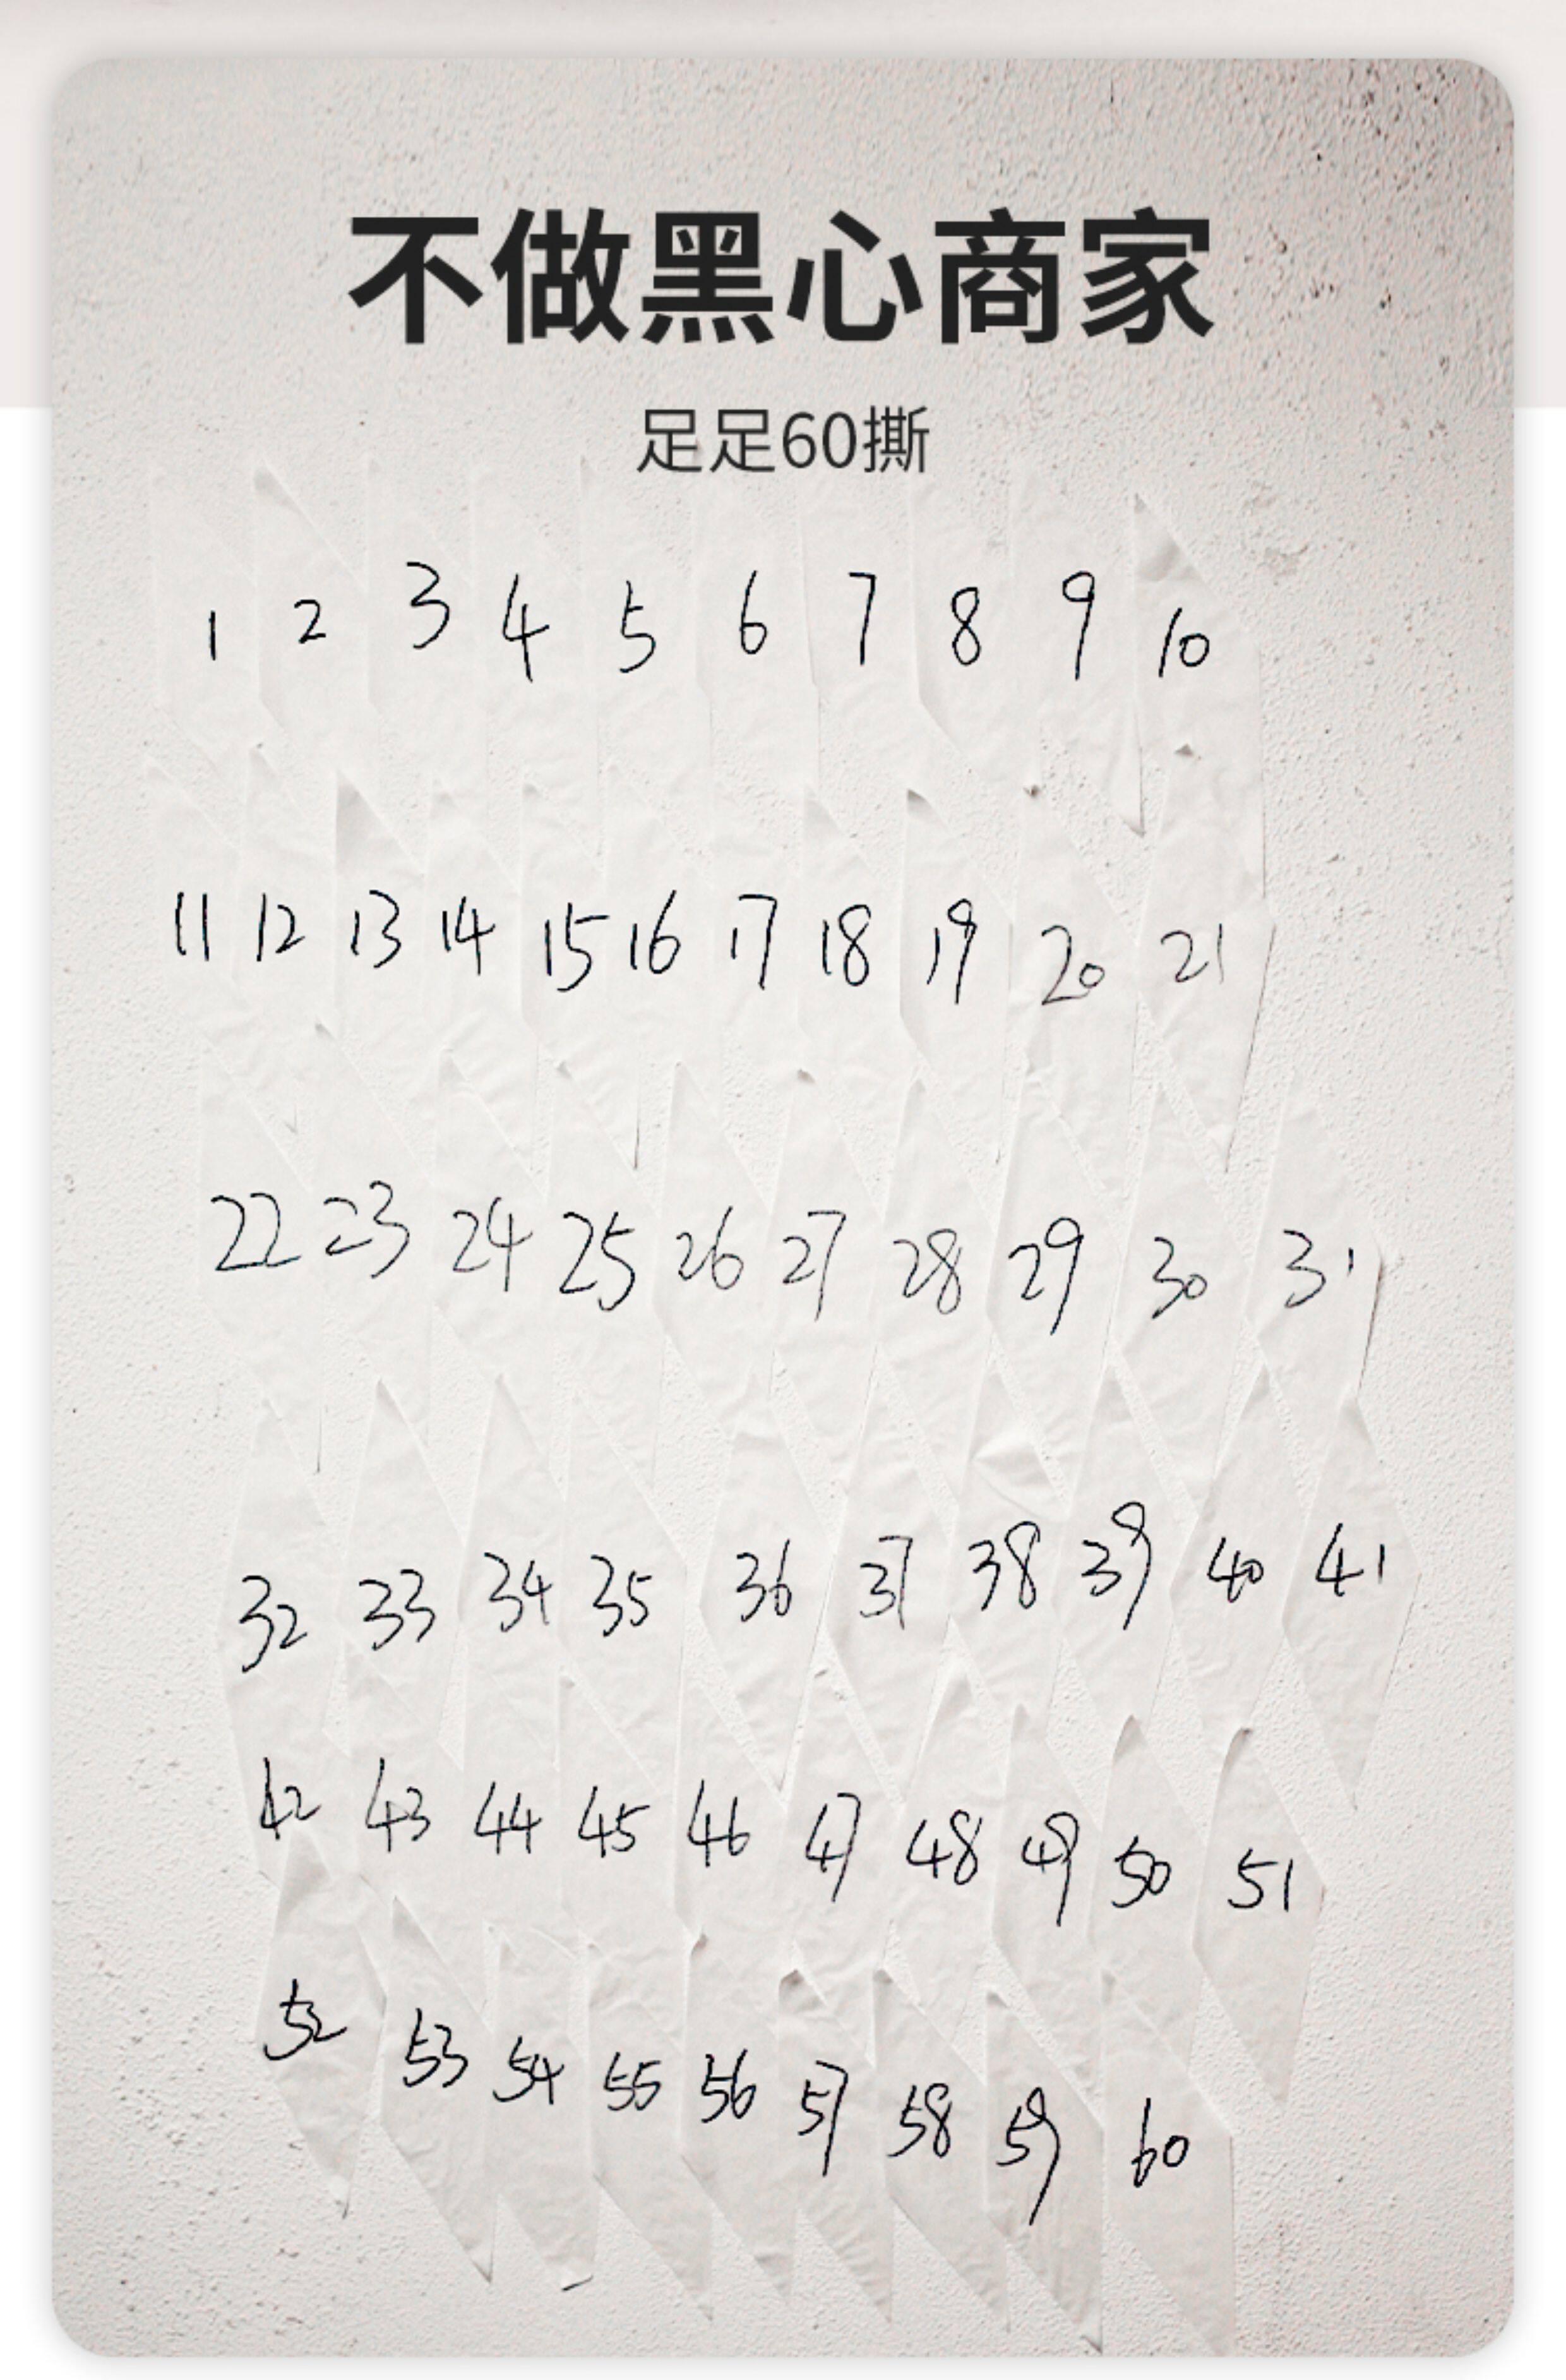 不做黑心商家
足足60撕
1 2 3 4 5 6 7 8 9 10
11 12 13 14 15 16 17 18 19 20 21
22 23 24 25 26 27 28 29 30 31
32 33 34 35 36 37 38 39 40 41
42 43 44 45 46 47 48 49 50 51
52 53 54 55 56 57 58 59 60